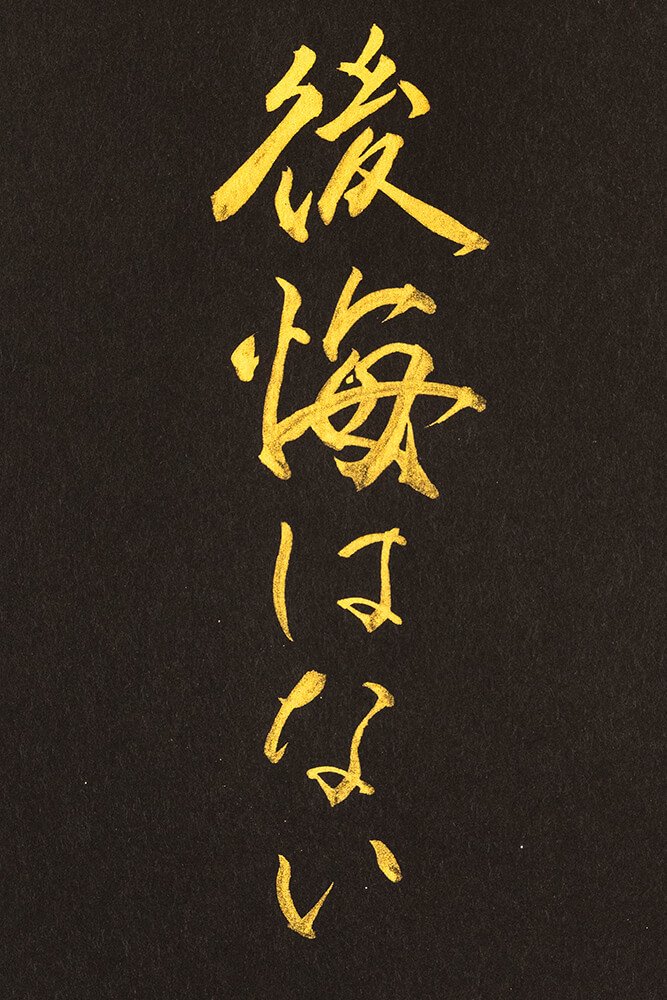 後悔はない